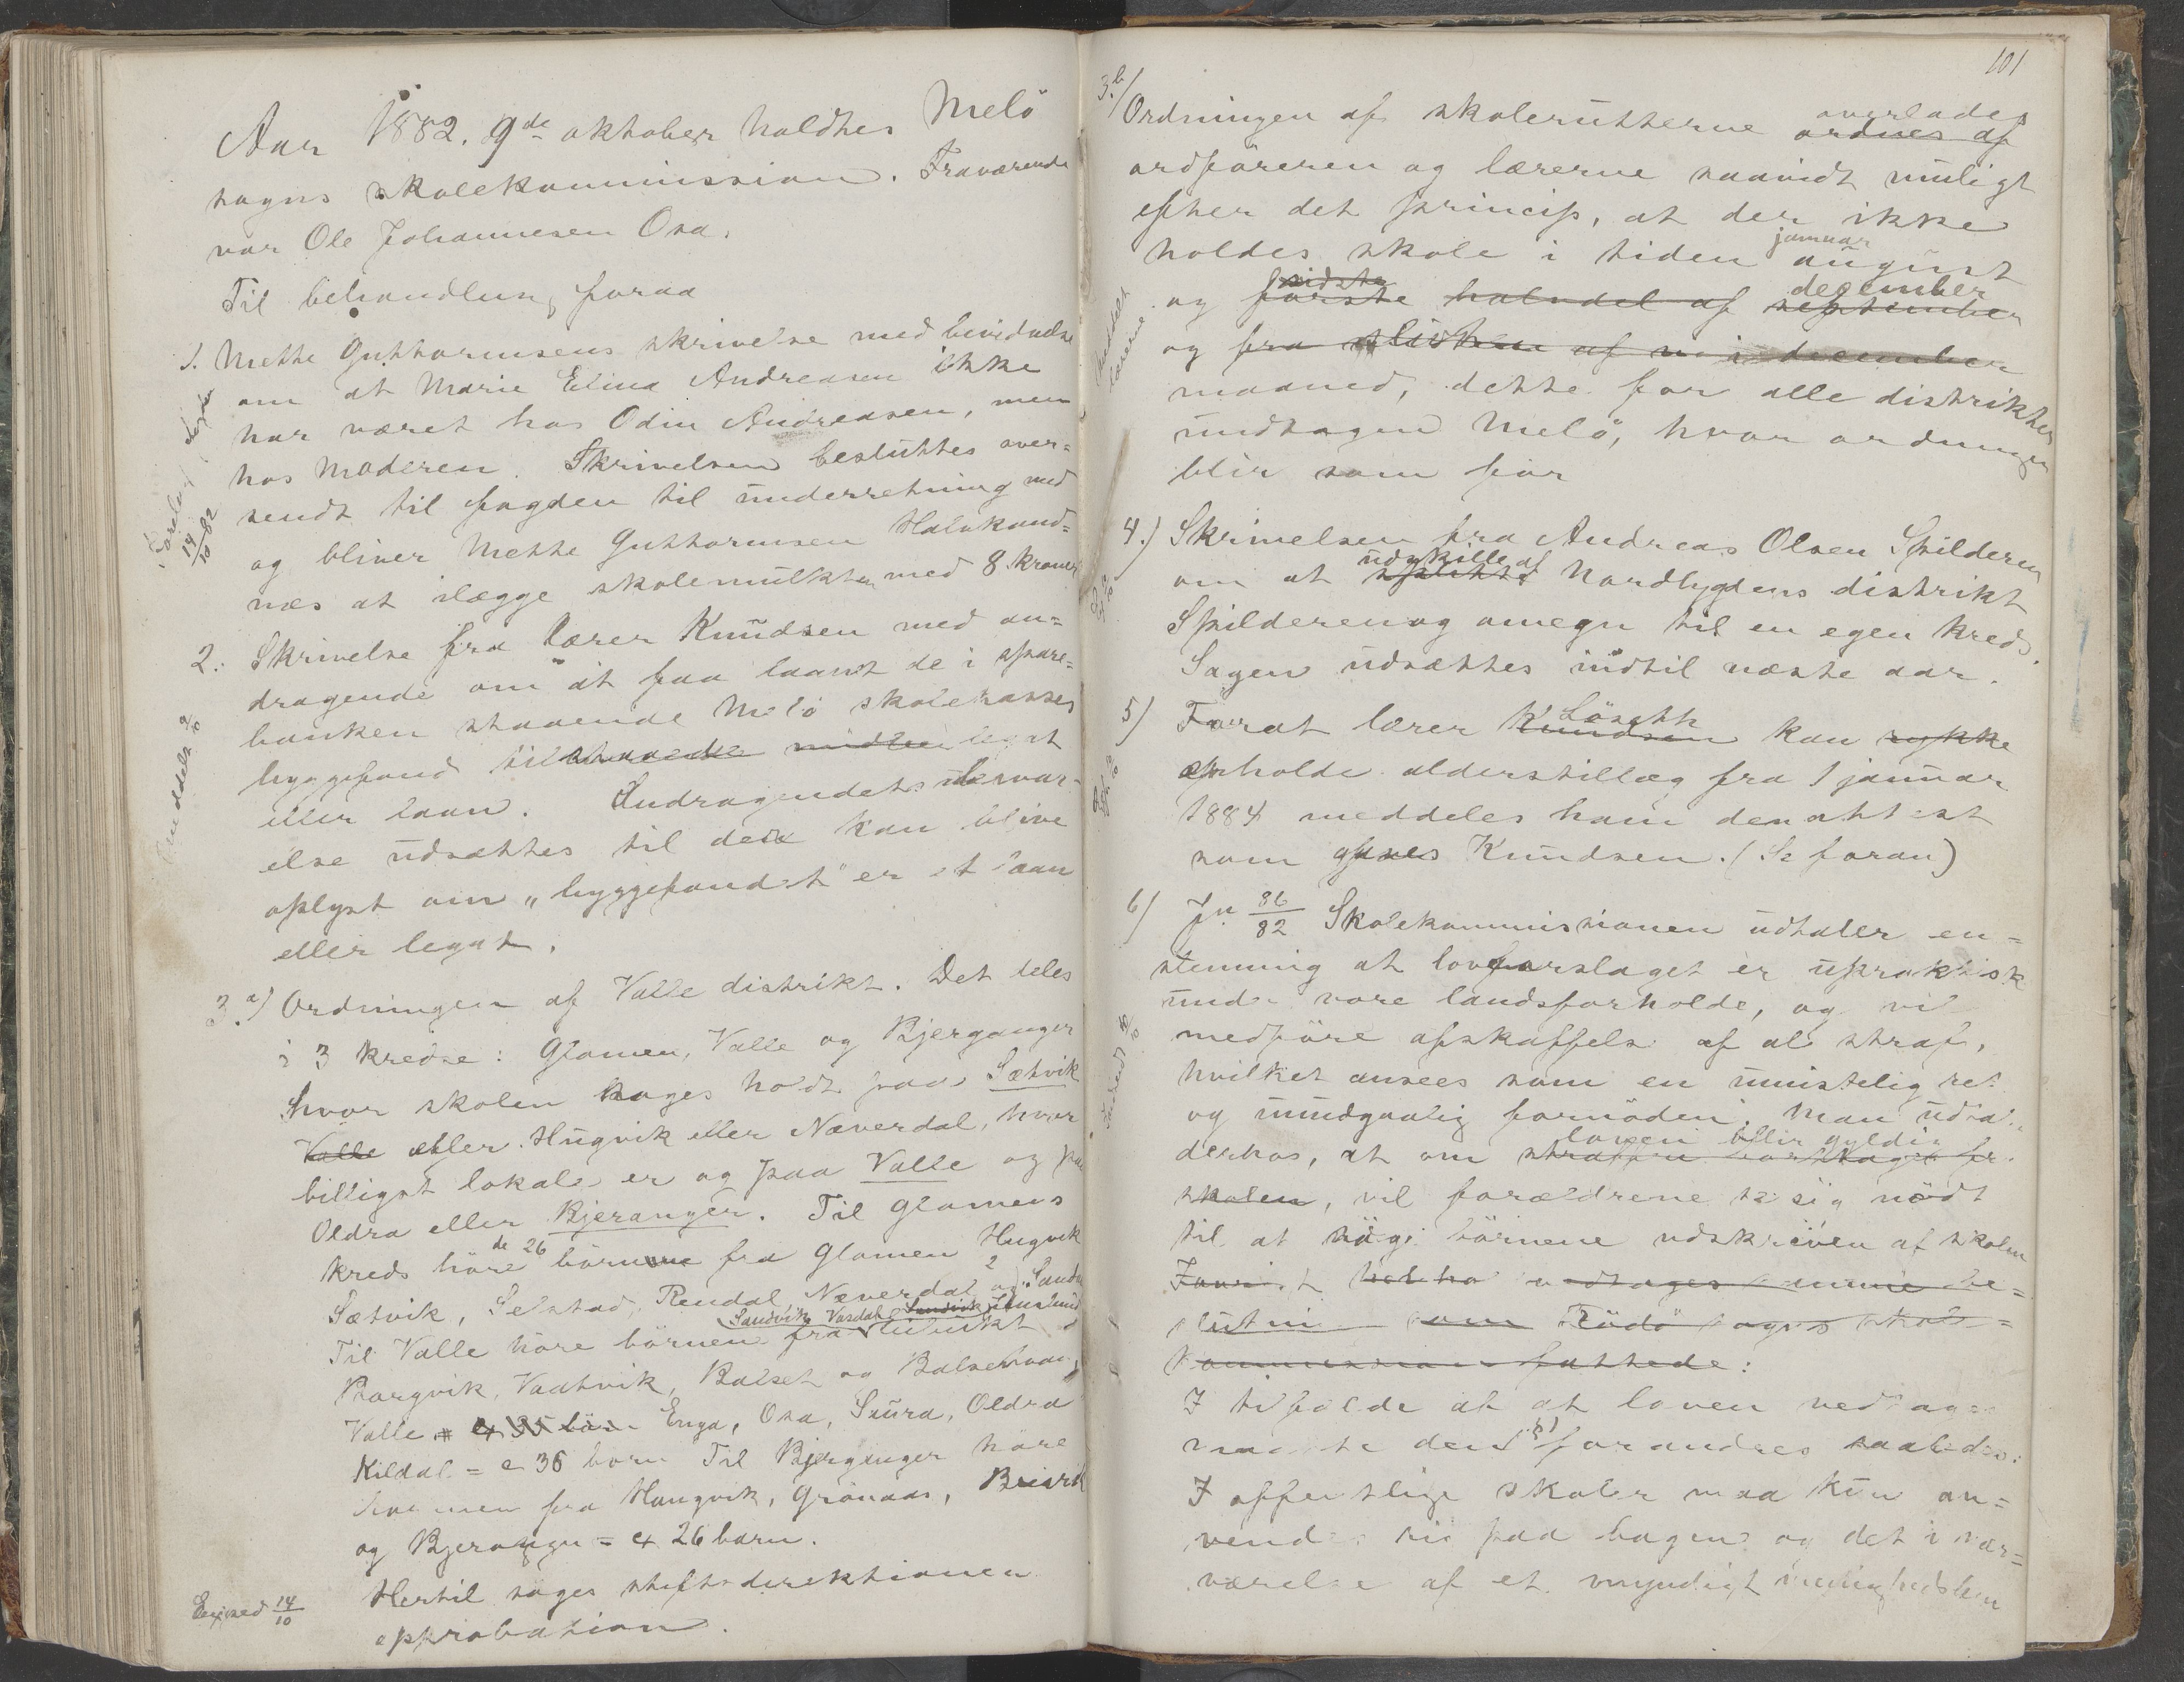 Aar 1882. 9de oktober holdtes Melö
sogns skolekommission. Fraværende
var Ole Johannesen Osa.
Til behandling foraa
1. Mette Guttormsens skrivelse med bevidnelse
om at Marie Elina Andreasen ikke
har været hos Odin Andreasen, men
hos moderen. Skrivelsen besluttes over=
sendt til fogden til underretning med
og bliver Mette Guttormsen Halvkand=
næs at ilægge skolemulkten med 8 kroner
14/10 82
2. Skrivelse fra lærer Knudsen med an=
dragende om at faa laant de i spare=
banken staaende Melö skolekasses
byggefond tilstaaende midler legat
eller laan. Andragendets besvar=
else udsættes til det kan blive
oplyst om "byggefondet" er et laan
eller legat.
Meddelt
3. a) Ordningen af Valle distrikt. Det deles
i 3 kredse: Glomen, Valle og Bjerganger
hvor skolen söges holdt paa Sætvik
Valle eller Hugvik eller Næverdal, hvor
billigst lokale er og paa Valle og paa
Oldra eller Bjeranger. Til Glomens
kreds höre de 26 börnene fra Glomen Hugvik
Sætvik, Selstad, Rendal Næverdal og
Sandvik Vasdal Sandvik
Til Valle höre börnene fra
Borgvik, Vaatvik, Balset og
Valle Enga, Osa, Snura, Oldra
Kildal = c 36 born Til Bjerganger höre
fra Haugvik, Grönaas,
og Bjerangen = c 26 barn.
Hertil söges stiftsdirektionen
approbation.
14/10
101
3. b) Ordningen af skolerutterne ordnes af overlades
ordföreren og lærerne saavidt muligt
efter det princip, at der ikke
holdes skole i tiden august januar
og förste sidste halvdel af september december
og fra slutten af december
maaned, dette for alle distrikter
undtagen Melö, hvor ordningen
blir som för
Meddelt
lærerne
4.) Skrivelsen fra Andreas Olsen Spilderen
om at udskille af Nordbygdens distrikt
Spilderen og omegn til en egen kreds.
Sagen udsættes indtil næste aar.
5) Forat lærer Knudsen kan rykke
opholde alderstillæg fra 1 januar
1884 meddeles ham den attest
som gaves Knudsen. (Se foran)
6) Jn 86/82 Skolekommissionen udtaler en=
stemmig at lovforslaget er upraktisk
under vore landsforholde, og vil
medföre afskaffelse af al straf,
hvilket ansees som en umistelig ret
og uundgaalig fornöden. Man udtaler
derhos, at om loven blir gyldig
skolen, vil forældrene se sig nödt
til at söge börnene udskreven af skolen
vedtages samme be=
slutning som Rödö sogns skole=
kommission fattede:
I tilfælde af at loven vedtages
maatte den forandres saaledes:
I offentlige skoler maa kun an=
vendes ris paa bagen og det i nær=
værelse af et myndigt